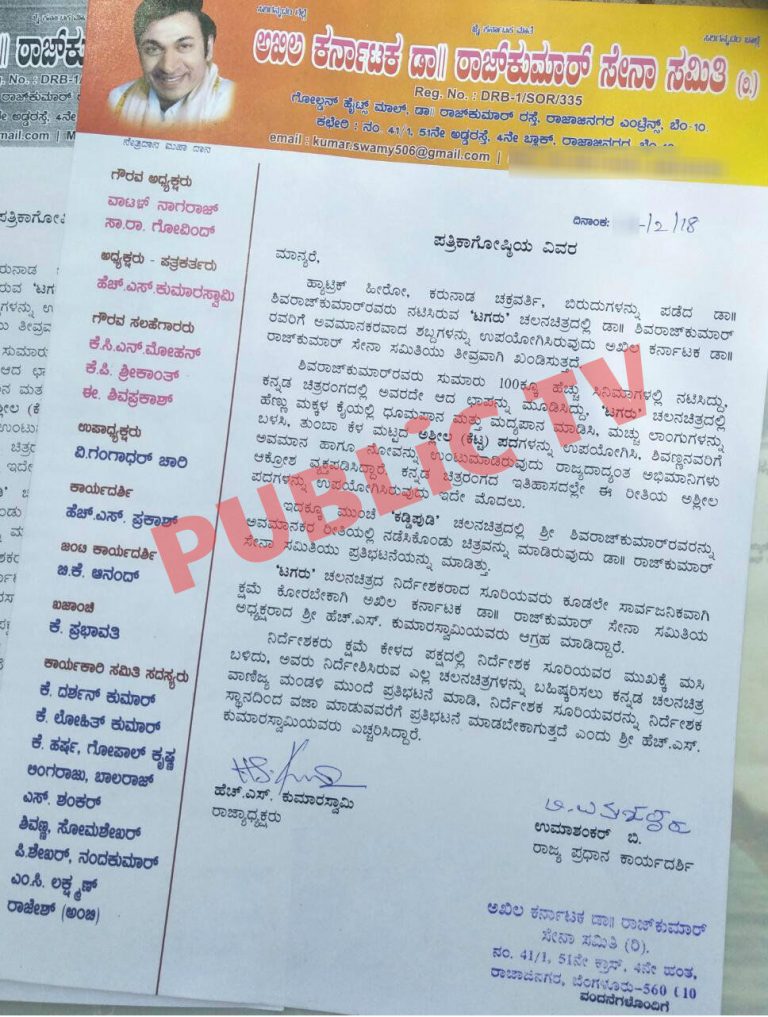 ಸಿರಿಗನ್ನಡಂ ಗೆಲ್ಗೆ
ಜೈ ಕರ್ನಾಟಕ ಮಾತೆ
ಸಿರಿಗನ್ನಡಂ ಬಾಳ್ಗೆ
ಅಖಿಲ ಕರ್ನಾಟಕ ಡಾ|| ರಾಜ್‌ಕುಮಾರ್ ಸೇನಾ ಸಮಿತಿ (ರಿ.)
Reg. No. : DRB-1/SOR/335
ಗೋಲ್ಡನ್ ಹೈಟ್ಸ್ ಮಾಲ್, ಡಾ|| ರಾಜ್‌ಕುಮಾರ್ ರಸ್ತೆ, ರಾಜಾಜಿನಗರ ಎಂಟ್ರೆನ್ಸ್, ಬೆಂ-10.
ಕಛೇರಿ : ನಂ 41/1, 51ನೇ ಅಡ್ಡರಸ್ತೆ, 4ನೇ ಬ್ಲಾಕ್, ರಾಜಾಜಿನಗರ, ಬೆಂ-10
email : kumar.swamy506@gmail.com |
ನೇತ್ರದಾನ ಮಹಾ ದಾನ
ಗೌರವ ಅಧ್ಯಕ್ಷರು
ವಾಟಾಳ್ ನಾಗರಾಜ್
ಸಾ.ರಾ. ಗೋವಿಂದ್
ಅಧ್ಯಕ್ಷರು - ಪತ್ರಕರ್ತರು
ಹೆಚ್.ಎಸ್.ಕುಮಾರಸ್ವಾಮಿ
ಗೌರವ ಸಲಹೆಗಾರರು
ಕೆ.ಸಿ.ಎನ್.ಮೋಹನ್
ಕೆ.ಪಿ. ಶ್ರೀಕಾಂತ್
ಈ. ಶಿವಪ್ರಕಾಶ್
ಉಪಾಧ್ಯಕ್ಷರು
ವಿ.ಗಂಗಾಧರ್ ಚಾರಿ
ಕಾರ್ಯದರ್ಶಿ
ಹೆಚ್.ಎಸ್. ಪ್ರಕಾಶ್
ಜಂಟಿ ಕಾರ್ಯದರ್ಶಿ
ಬಿ.ಕೆ. ಆನಂದ್
ಖಜಾಂಚಿ
ಕೆ. ಪ್ರಭಾವತಿ
ಕಾರ್ಯಕಾರಿ ಸಮಿತಿ ಸದಸ್ಯರು
ಕೆ. ದರ್ಶನ್ ಕುಮಾರ್
ಕೆ. ಲೋಹಿತ್ ಕುಮಾರ್
ಕೆ. ಹರ್ಷ, ಗೋಪಾಲ್ ಕೃಷ್ಣ
ಲಿಂಗರಾಜು, ಬಾಲರಾಜ್
ಎಸ್. ಶಂಕರ್
ಶಿವಣ್ಣ, ಸೋಮಶೇಖರ್
ಪಿ.ಶೇಖರ್, ನಂದಕುಮಾರ್
ಎಂ.ಸಿ. ಲಕ್ಷ್ಮಣ್
ರಾಜೇಶ್ (ಅಂಬಿ)
ದಿನಾಂಕ: -/2/18
ಪತ್ರಿಕಾಗೋಷ್ಠಿಯ ವಿವರ
ಮಾನ್ಯರೆ,
ಹ್ಯಾಟ್ರಿಕ್ ಹೀರೋ, ಕರುನಾಡ ಚಕ್ರವರ್ತಿ, ಬಿರುದುಗಳನ್ನು ಪಡೆದ ಡಾ||
ಶಿವರಾಜ್‌ಕುಮಾರ್‌ರವರು ನಟಿಸಿರುವ 'ಟಗರು' ಚಲನಚಿತ್ರದಲ್ಲಿ ಡಾ|| ಶಿವರಾಜ್‌ಕುಮಾರ್
ರವರಿಗೆ ಅವಮಾನಕರವಾದ ಶಬ್ದಗಳನ್ನು ಉಪಯೋಗಿಸಿರುವುದು ಅಖಿಲ ಕರ್ನಾಟಕ ಡಾ||
ರಾಜ್‌ಕುಮಾರ್ ಸೇನಾ ಸಮಿತಿಯು ತೀವ್ರವಾಗಿ ಖಂಡಿಸುತ್ತದೆ.
ಶಿವರಾಜ್‌ಕುಮಾರ್‌ರವರು ಸುಮಾರು 100ಕ್ಕೂ ಹೆಚ್ಚು ಸಿನಿಮಾಗಳಲ್ಲಿ ನಟಿಸಿದ್ದು,
ಕನ್ನಡ ಚಿತ್ರರಂಗದಲ್ಲಿ ಅವರದೇ ಆದ ಛಾಪನ್ನು ಮೂಡಿಸಿದ್ದು, 'ಟಗರು' ಚಲನಚಿತ್ರದಲ್ಲಿ
ಹೆಣ್ಣು ಮಕ್ಕಳ ಕೈಯಲ್ಲಿ ಧೂಮಪಾನ ಮತ್ತು ಮದ್ಯಪಾನ ಮಾಡಿಸಿ, ಮಚ್ಚು ಲಾಂಗುಗಳನ್ನು
ಬಳಸಿ, ತುಂಬಾ ಕೆಳ ಮಟ್ಟದ ಅಶ್ಲೀಲ (ಕೆಟ್ಟ) ಪದಗಳನ್ನು ಉಪಯೋಗಿಸಿ, ಶಿವಣ್ಣನವರಿಗೆ
ಅವಮಾನ ಹಾಗೂ ನೋವನ್ನು ಉಂಟುಮಾಡಿರುವುದು ರಾಜ್ಯದಾದ್ಯಂತ ಅಭಿಮಾನಿಗಳು
ಆಕ್ರೋಶ ವ್ಯಕ್ತಪಡಿಸಿದ್ದಾರೆ. ಕನ್ನಡ ಚಿತ್ರರಂಗದ ಇತಿಹಾಸದಲ್ಲೇ ಈ ರೀತಿಯ ಅಶ್ಲೀಲ
ಪದಗಳನ್ನು ಉಪಯೋಗಿಸಿರುವುದು ಇದೇ ಮೊದಲು.
ಇದಕ್ಕೂ ಮುಂಚೆ 'ಕಡ್ಡಿಪುಡಿ' ಚಲನಚಿತ್ರದಲ್ಲಿ ಶ್ರೀ ಶಿವರಾಜ್‌ಕುಮಾರ್‌ರವರನ್ನು
ಅವಮಾನಕರ ರೀತಿಯಲ್ಲಿ ನಡೆಸಿಕೊಂಡು ಚಿತ್ರವನ್ನು ಮಾಡಿರುವುದು ಡಾ|| ರಾಜ್‌ಕುಮಾರ್
ಸೇನಾ ಸಮಿತಿಯು ಪ್ರತಿಭಟನೆಯನ್ನು ಮಾಡಿತ್ತು.
'ಟಗರು' ಚಲನಚಿತ್ರದ ನಿರ್ದೇಶಕರಾದ ಸೂರಿಯವರು ಕೂಡಲೇ ಸಾರ್ವಜನಿಕವಾಗಿ
ಕ್ಷಮೆ ಕೋರಬೇಕಾಗಿ ಅಖಿಲ ಕರ್ನಾಟಕ ಡಾ|| ರಾಜ್‌ಕುಮಾರ್ ಸೇನಾ ಸಮಿತಿಯ
ಅಧ್ಯಕ್ಷರಾದ ಶ್ರೀ ಹೆಚ್.ಎಸ್. ಕುಮಾರಸ್ವಾಮಿಯವರು ಆಗ್ರಹ ಮಾಡಿದ್ದಾರೆ.
ನಿರ್ದೇಶಕರು ಕ್ಷಮೆ ಕೇಳದ ಪಕ್ಷದಲ್ಲಿ ನಿರ್ದೇಶಕ ಸೂರಿಯವರ ಮುಖಕ್ಕೆ ಮಸಿ
ಬಳಿದು, ಅವರು ನಿರ್ದೇಶಿಸಿರುವ ಎಲ್ಲ ಚಲನಚಿತ್ರಗಳನ್ನು ಬಹಿಷ್ಕರಿಸಲು ಕನ್ನಡ ಚಲನಚಿತ್ರ
ವಾಣಿಜ್ಯ ಮಂಡಳಿ ಮುಂದೆ ಪ್ರತಿಭಟನೆ ಮಾಡಿ, ನಿರ್ದೇಶಕ ಸೂರಿಯವರನ್ನು ನಿರ್ದೇಶಕ
ಸ್ಥಾನದಿಂದ ವಜಾ ಮಾಡುವವರೆಗೆ ಪ್ರತಿಭಟನೆ ಮಾಡಬೇಕಾಗುತ್ತದೆ ಎಂದು ಶ್ರೀ ಹೆಚ್.ಎಸ್.
ಕುಮಾರಸ್ವಾಮಿಯವರು ಎಚ್ಚರಿಸಿದ್ದಾರೆ.
ಹೆಚ್.ಎಸ್. ಕುಮಾರಸ್ವಾಮಿ
ರಾಜ್ಯಾಧ್ಯಕ್ಷರು
ಉಮಾಶಂಕರ್ ಬಿ.
ರಾಜ್ಯ ಪ್ರಧಾನ ಕಾರ್ಯದರ್ಶಿ
ಅಖಿಲ ಕರ್ನಾಟಕ ಡಾ|| ರಾಜ್‌ಕುಮಾರ್
ಸೇನಾ ಸಮಿತಿ (ರಿ).
ನಂ. 41/1, 51ನೇ ಕ್ರಾಸ್, 4ನೇ ಹಂತ,
ರಾಜಾಜಿನಗರ, ಬೆಂಗಳೂರು-560 010
ವಂದನೆಗಳೊಂದಿಗೆ
PUBLiC TV